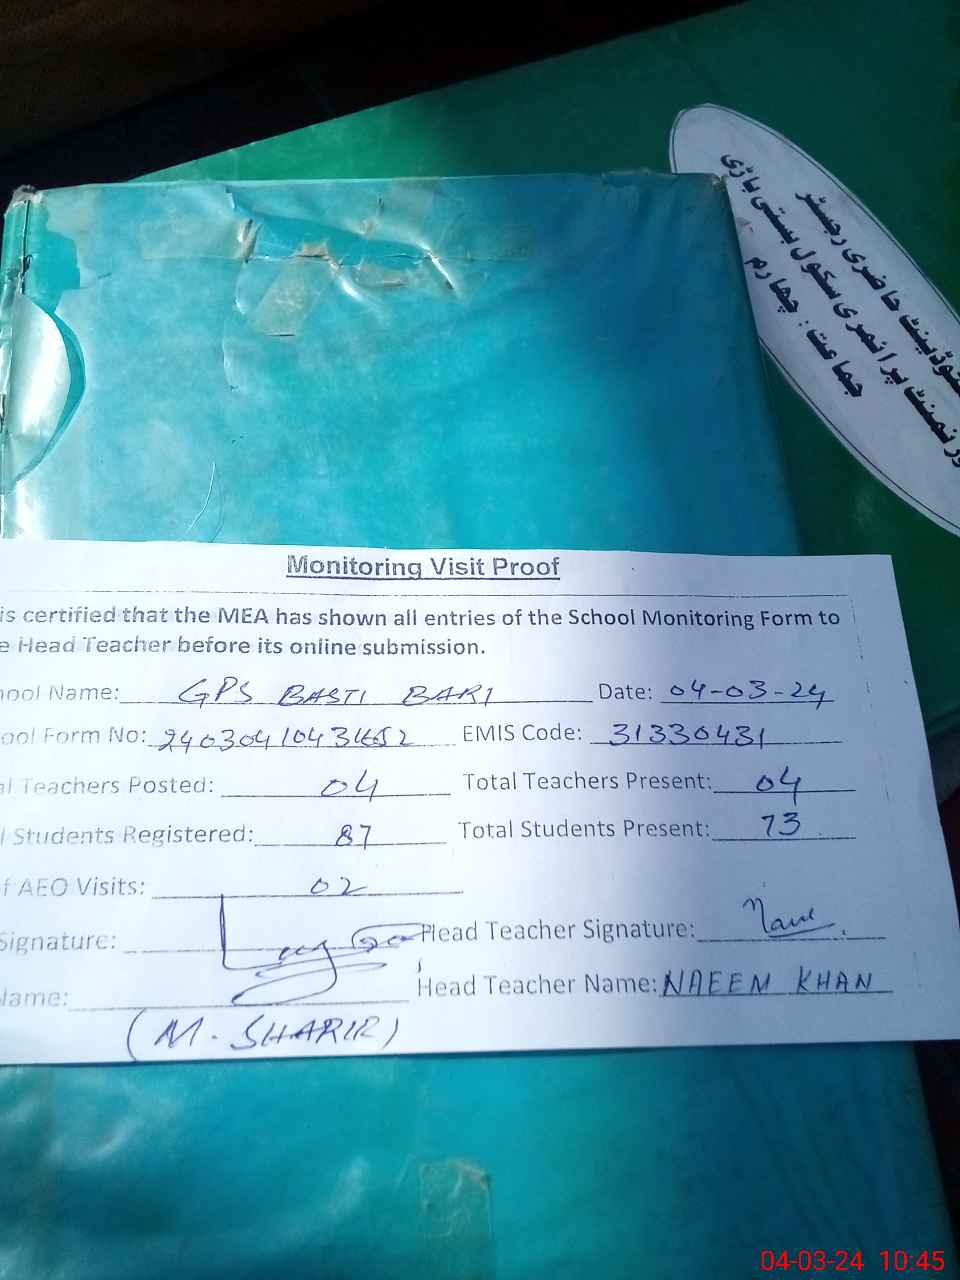 سٹوڈینٹ حاضری رجسٹر
ورنمنٹ پرائمری سکول بستی باڑی
جماعت : چہارم
Monitoring Visit Proof
is certified that the MEA has shown all entries of the School Monitoring Form to
e Head Teacher before its online submission.
ool Name: GPS BASTI BARI Date: 04-03-24
ool Form No: EMIS Code: 31330431
al Teachers Posted: 04 Total Teachers Present: 04
l Students Registered: 87 Total Students Present: 73
f AEO Visits: 02
Signature: Head Teacher Signature: Naeem
Name: Head Teacher Name: NAEEM KHAN
04-03-24 10:45